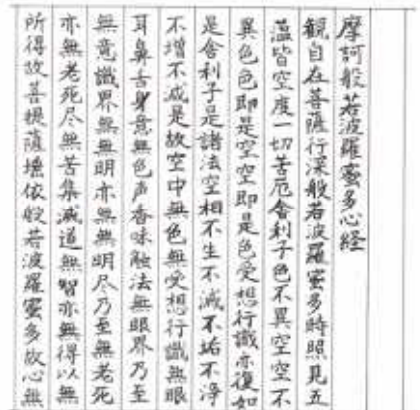 摩訶般若波羅蜜多心経
観自在菩薩行深般若波羅蜜多時照見五
蘊皆空度一切苦厄舎利子色不異空空不
異色色即是空空即是色受想行識亦復如
是舎利子是諸法空相不生不滅不垢不浄
不増不減是故空中無色無受想行識無眼
耳鼻舌身意無色声香味触法無眼界乃至
無意識界無無明亦無無明尽乃至無老死
亦無老死尽無苦集滅道無智亦無得以無
所得故菩提薩埵依般若波羅蜜多故心無